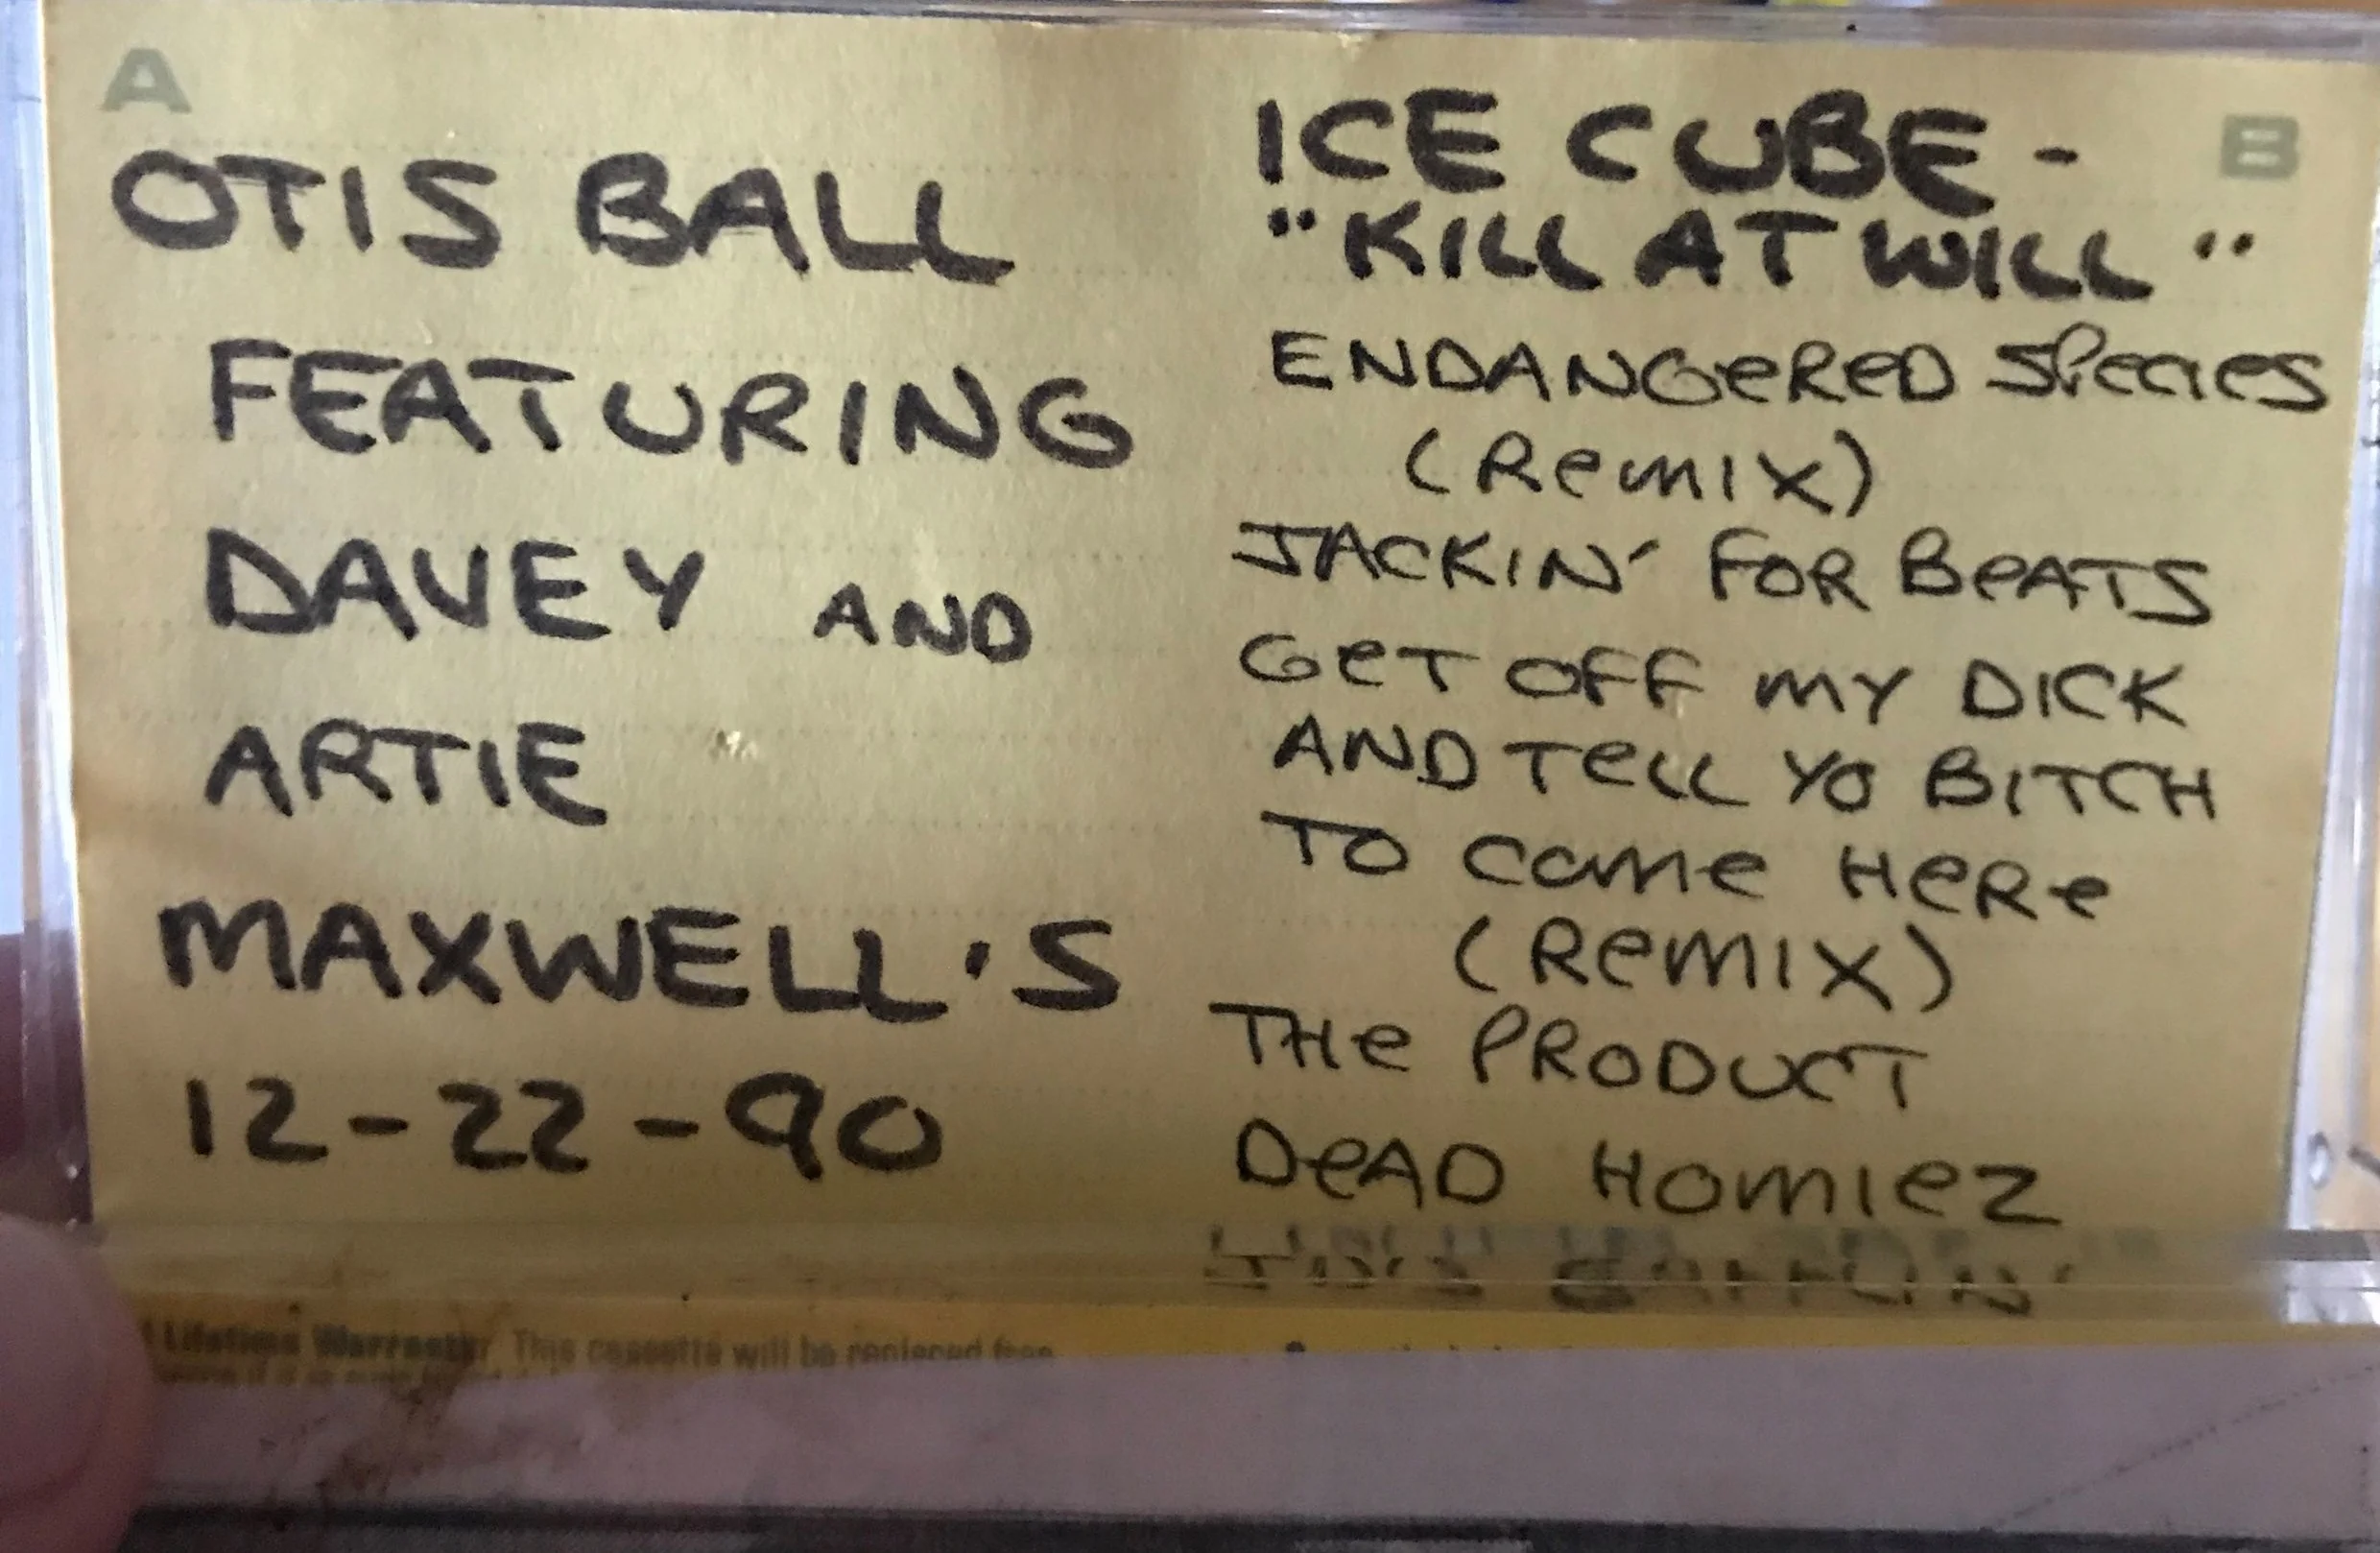 A
OTIS BALL
FEATURING
DAVEY AND
ARTIE
MAXWELL'S
12-22-90
B
ICE CUBE -
"KILL AT WILL"
ENDANGeReD SPecies
(RemIX)
JACKIN' FOR BeATS
GeT OFF MY DICK
AND TeLL YO BITCH
TO Come HeRe
(RemIX)
THe PRODUCT
DeAD HomIeZ
Lifetime Warranty. This cassette will be replaced free